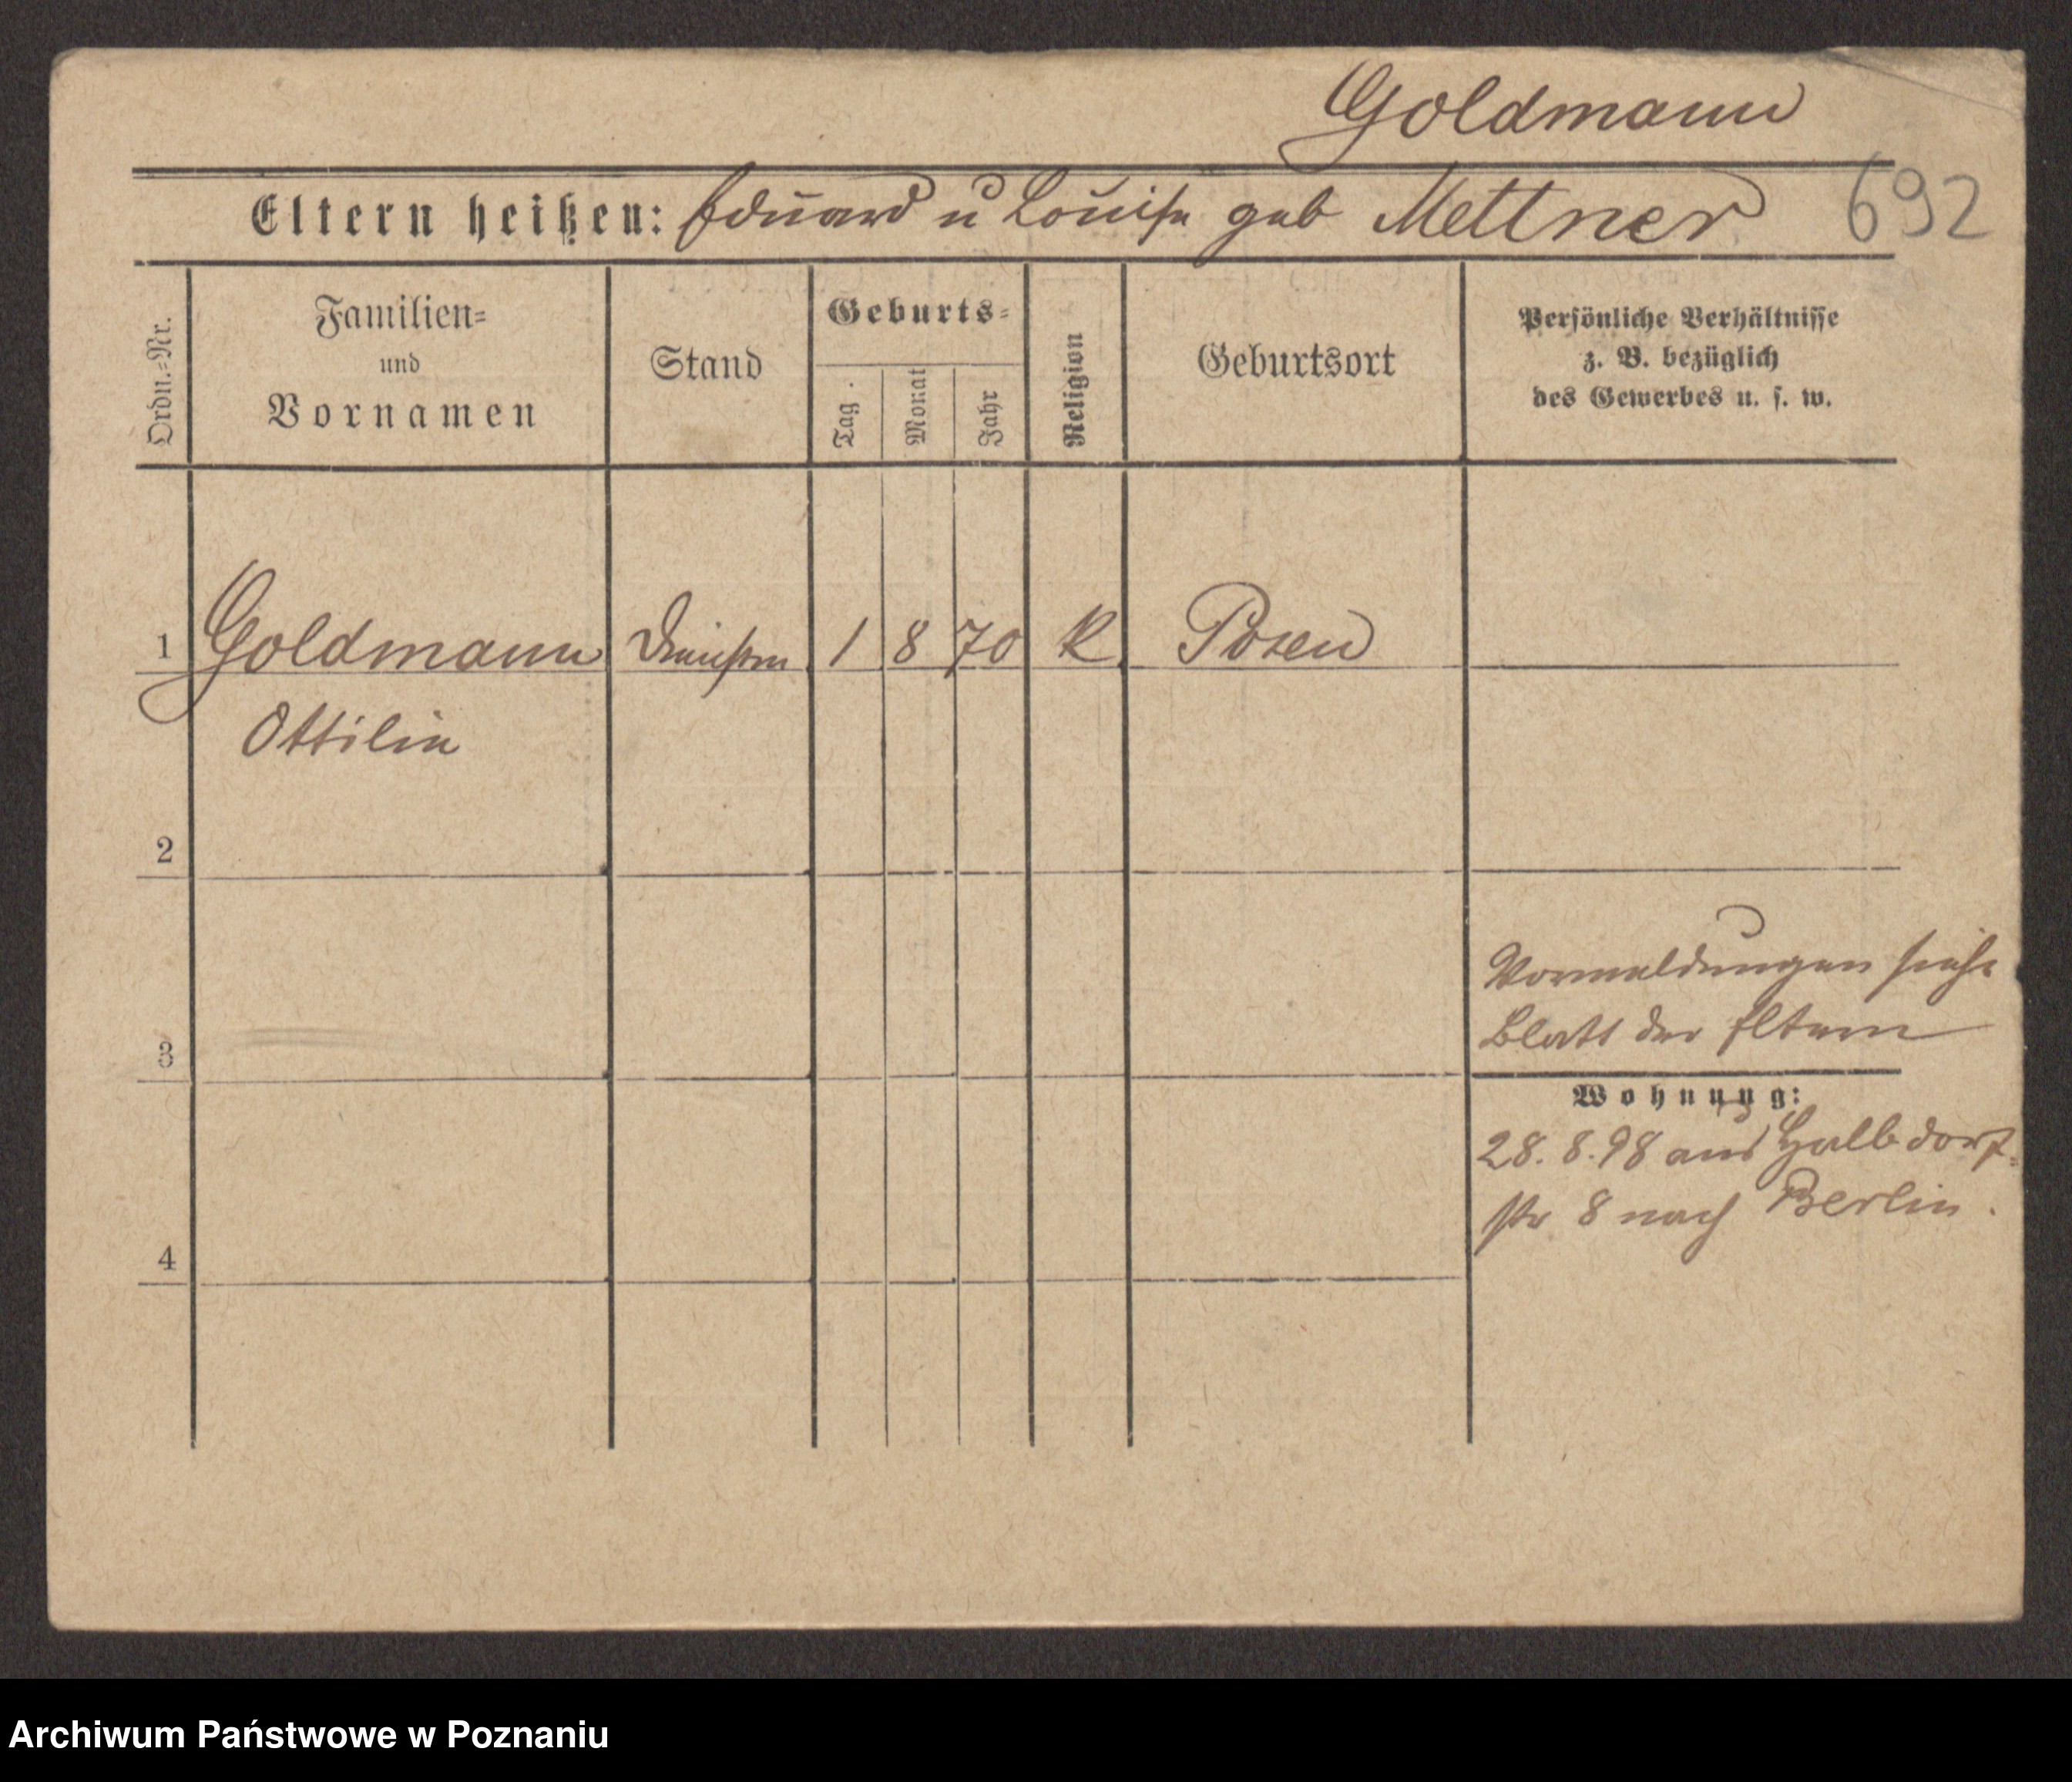 Goldmann
Eltern heißen: Eduard u Louise geb Mettner 692
Ordn.=Nr.
Familien=
und
Vornamen
Stand
Geburts=
Tag.
Monat
Jahr
Religion
Geburtsort
Persönliche Verhältnisse
z. B. bezüglich
des Gewerbes u. s. w.
1 Goldmann 1 8 70 K Posen
Ottilie
2
Vormeldungen siehe
Blatt der Eltern
3
Wohnung:
28. 8. 98 aus Halbdorf=
str 8 nach Berlin.
4
Archiwum Państwowe w Poznaniu